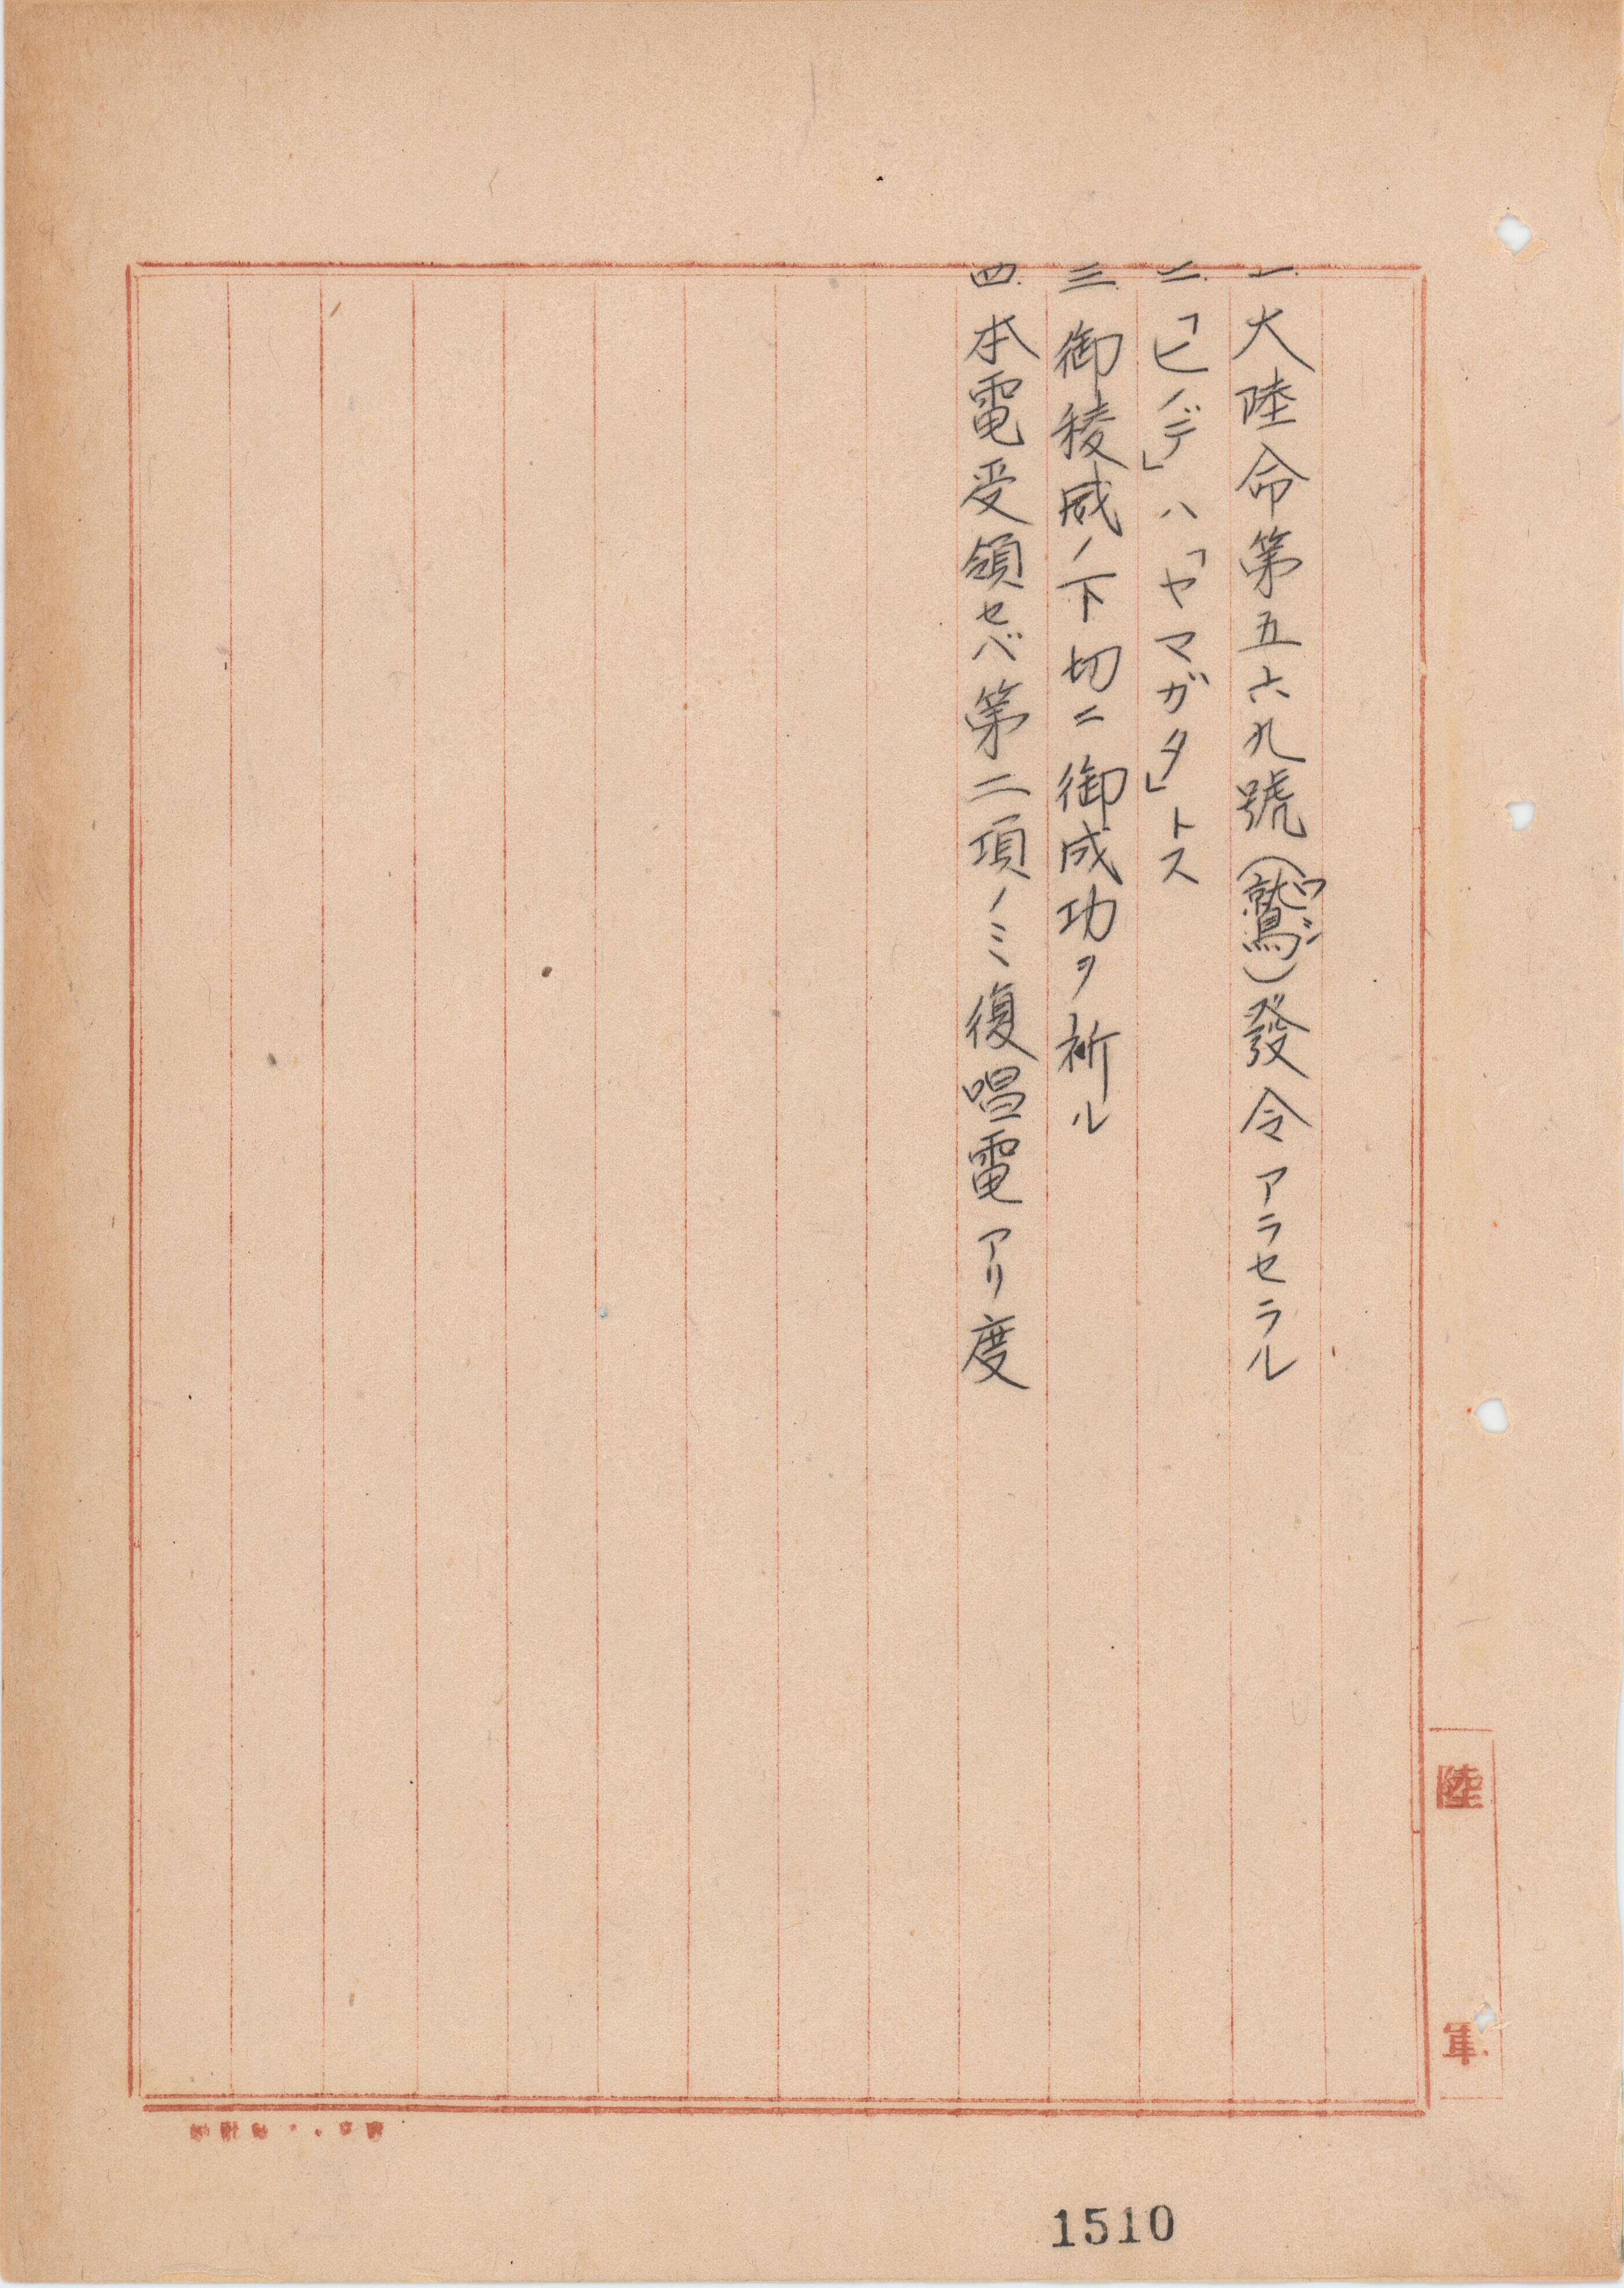 一.大陸命第五六九號(鷲)發令アラセラル
ワシ
二.「ヒノデ」ハ「ヤマガタ」トス
三.御稜威ノ下切ニ御成功ヲ祈ル
四.本電受領セバ第二項ノミ復唱電アリ度
陸軍
1510